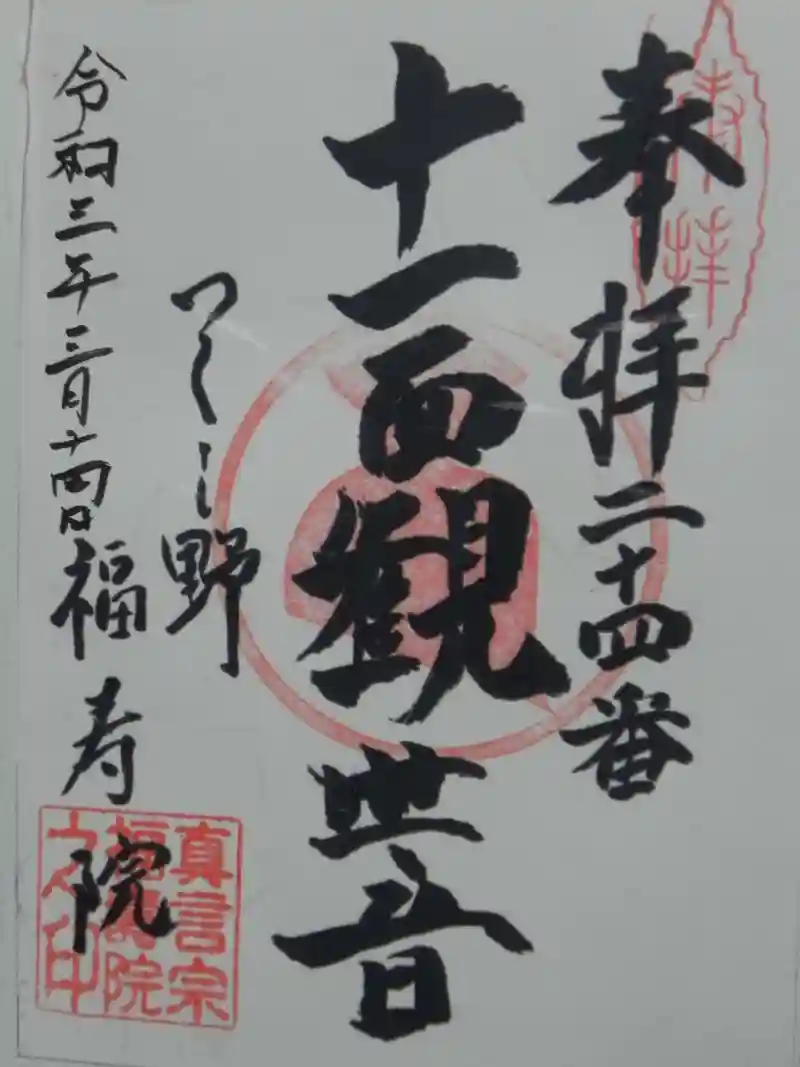 奉拝二十四番
十一面観世音
つくし野
令和三年三月十四日
福寿院
奉拝
真言宗
福寿院
之印